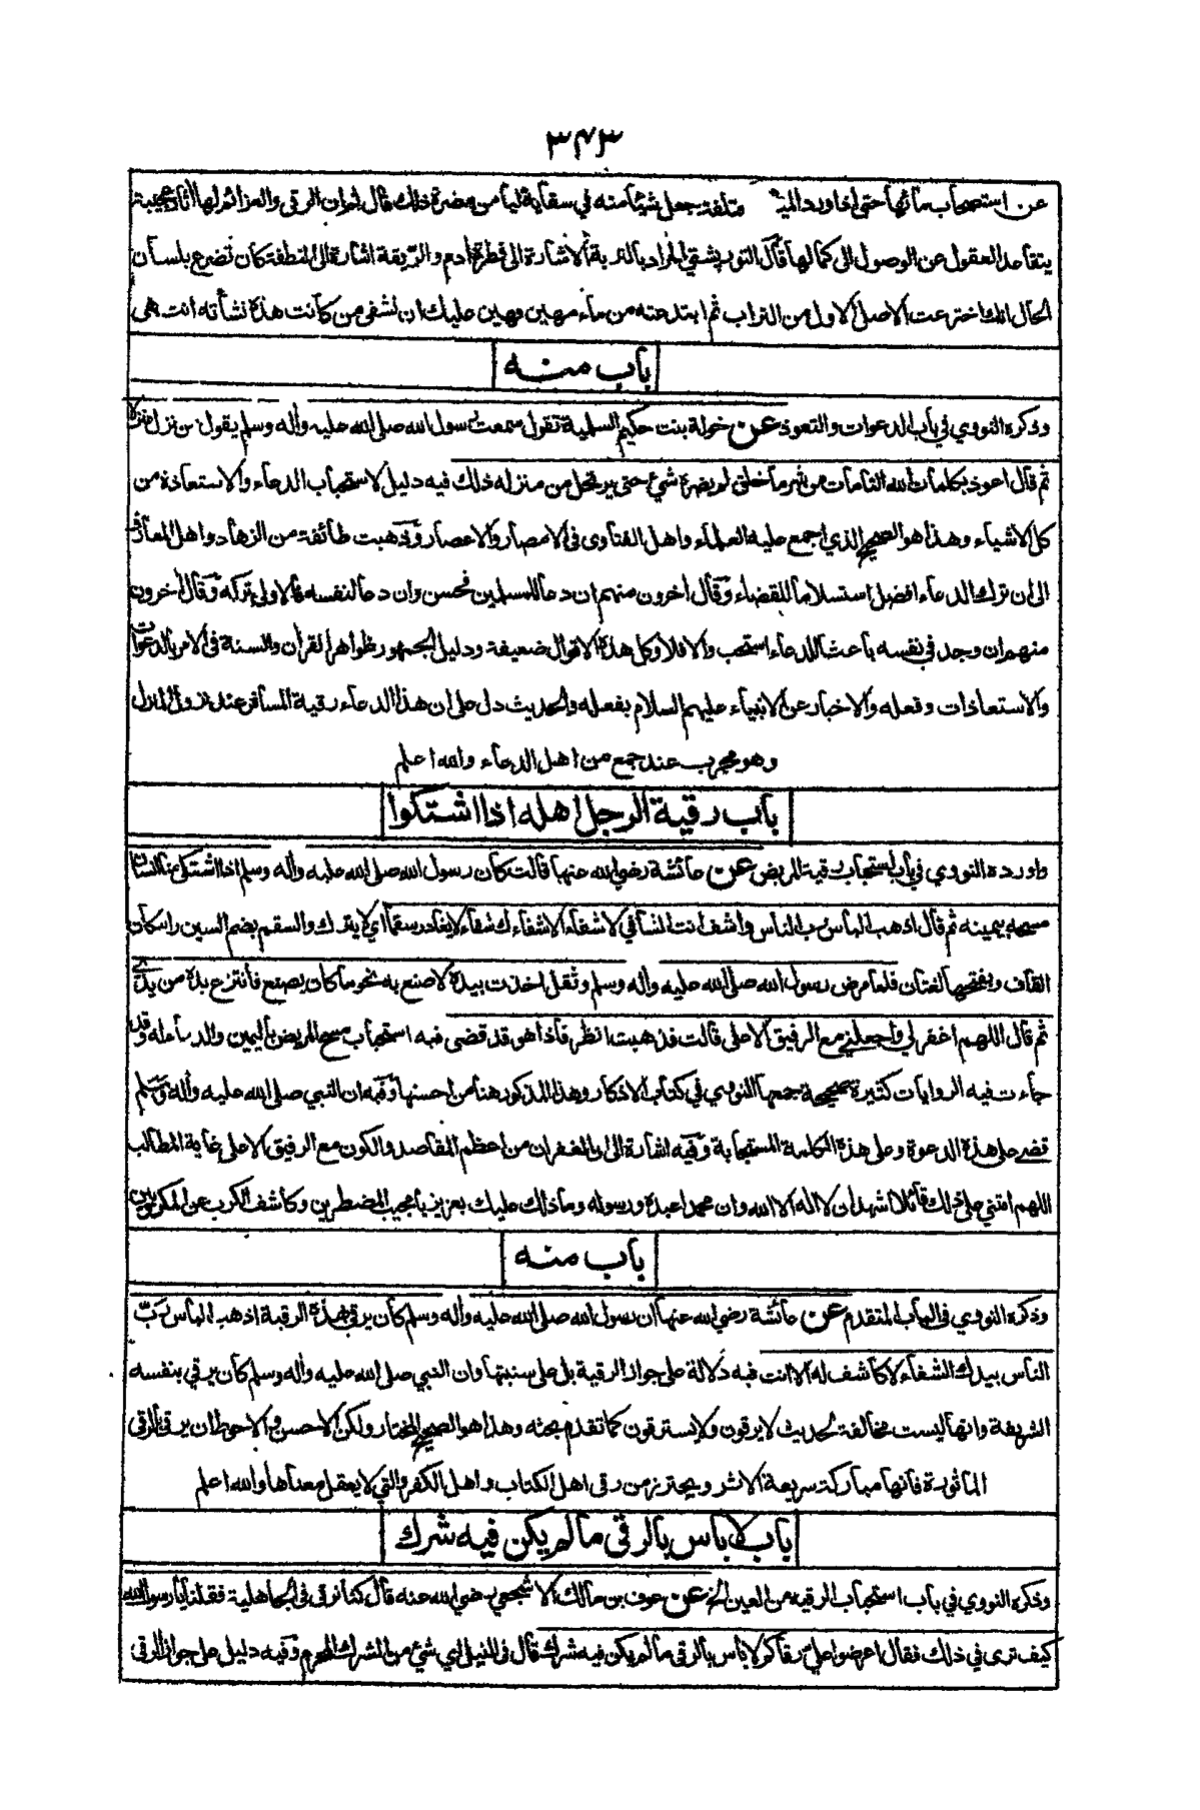 ٣٤٣
عن استصحاب مائها حتى اذا ورد المياه المختلفة جعل شيئا منه في سقايه ليأمن مضرة ذلك قال ثم ان الرقى والعزائم لها اثار عجيبة
يتقاعد العقول عن الوصول الى كنهها قال التوربشتي المراد بالتربة الاشارة الى فطرة ادم والريقة اشارة الى النطفة كان تضرع بلسان
الحال انك اخترعت الاصل الاول من التراب ثم ابتدعته من ماء مهين فهين عليك ان تشفي من كانت هذه نشأته انتهى
باب منه
وذكره النووي في باب الدعوات والتعوذ عن خولة بنت حكيم السلمية تقول سمعت رسول الله صلى الله عليه وأله وسلم يقول من نزل منزلا
ثم قال اعوذ بكلمات الله التامات من شر ما خلق لم يضره شيء حتى يرتحل من منزله ذلك فيه دليل لاستحباب الدعاء والاستعاذة من
كل الاشياء وهذا هو الصحيح الذي اجمع عليه العلماء واهل الفتاوى في الامصار والاعصار وذهبت طائفة من الزهاد واهل المعارف
الى ان ترك الدعاء افضل استسلاما للقضاء وقال اخرون منهم ان دعا للمسلمين فحسن وان دعا لنفسه فالاولى تركه وقال اخرون
منهم ان وجد في نفسه باعثا للدعاء استحب والا فلا وكل هذه الاقوال ضعيفة ودليل الجمهور ظواهر القران والسنة في الامر بالدعوات
والاستعاذات وفعله والاخبار عن الانبياء عليهم السلام بفعله والحديث دل على ان هذا الدعاء رقية المسافر عند نزول المنازل
وهو مجرب عند جمع من اهل الدعاء والله اعلم
باب رقية الرجل اهله اذا اشتكوا
واورده النووي في باب استحباب رقية المريض عن عائشة رضي الله عنها قالت كان رسول الله صلى الله عليه وأله وسلم اذا اشتكى منا انسان
مسحه بيمينه ثم قال اذهب الباس رب الناس واشف انت الشافي لا شفاء الا شفاءك شفاء لا يغادر سقما اي لا يترك والسقم بضم السين واسكان
القاف وبفتحهما لغتان فلما مرض رسول الله صلى الله عليه وأله وسلم وثقل اخذت بيده لاصنع به نحو ما كان يصنع فانتزع يده من يدي
ثم قال اللهم اغفر لي واجعلني مع الرفيق الاعلى قالت فذهبت انظر فاذا هو قد قضى فيه استحباب مسح المريض باليمين والدعاء له وقد
جاءت فيه الروايات كثيرة صحيحة جمعها النووي في كتاب الاذكار وهذا المذكور هنا من احسنها وفيه ان النبي صلى الله عليه وأله وسلم
قضى على هذه الدعوة وعلى هذه الكلمة المستجابة وفيه اشارة الى ان الغفران من اعظم المقاصد والكون مع الرفيق الاعلى غاية المطالب
اللهم امتني على ذلك قائلا اشهد ان لا اله الا الله وان محمدا عبده ورسوله وما ذلك عليك بعزيز يا مجيب المضطرين وكاشف الكرب عن المكروبين
باب منه
وذكره النووي في الباب المتقدم عن عائشة رضي الله عنها ان رسول الله صلى الله عليه وأله وسلم كان يرقي بهذه الرقية اذهب الباس رب
الناس بيدك الشفاء لا كاشف له الا انت فيه دلالة على جواز الرقية بل على سنيتها وان النبي صلى الله عليه وأله وسلم كان يرقي بنفسه
الشريفة وانها ليست مخالفة لحديث لا يرقون ولا يسترقون كما تقدم بحثه وهذا هو الصحيح المختار ولكن الاحسن والاحوط ان يرقى بالرقى
الماثورة فانها مباركة سريعة الاثر ويحترز من رقى اهل الكتاب واهل الكفر والتي لا يعقل معناها والله اعلم
باب لا باس بالرقى ما لم يكن فيه شرك
وذكره النووي في باب استحباب الرقية من العين الخ عن عوف بن مالك الاشجعي رضي الله عنه قال كنا نرقى في الجاهلية فقلنا يا رسول الله
كيف ترى في ذلك فقال اعرضوا علي رقاكم لا باس بالرقى ما لم يكن فيه شرك قال في النيل اي شيء من الشرك المحرم وفيه دليل على جواز الرقى